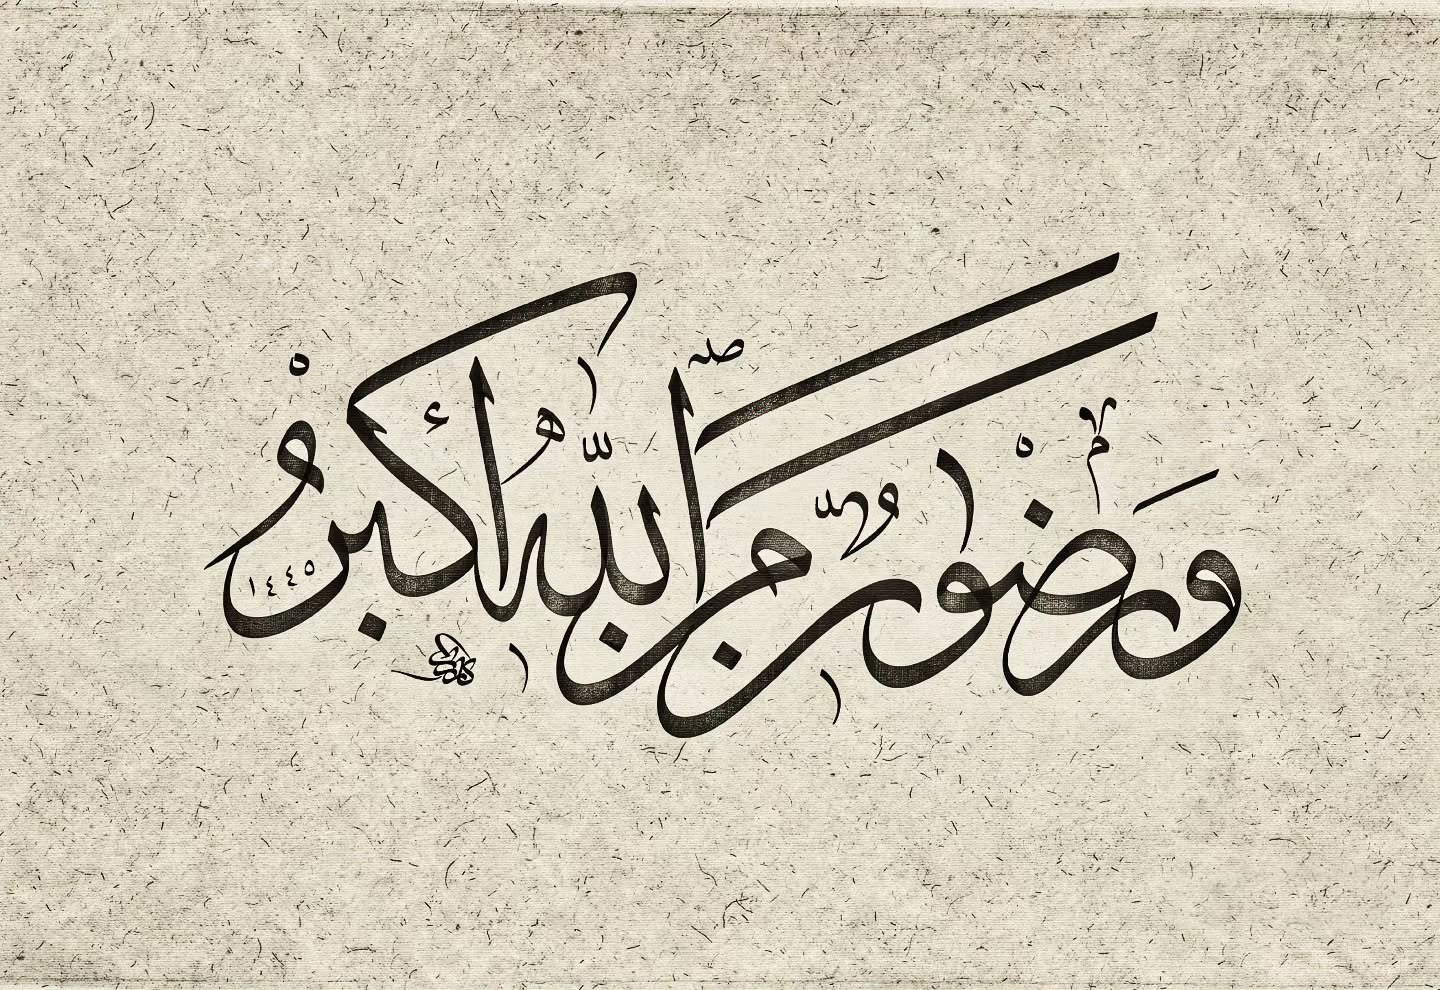 ورضوٰن من الله أكبر
١٤٤٥